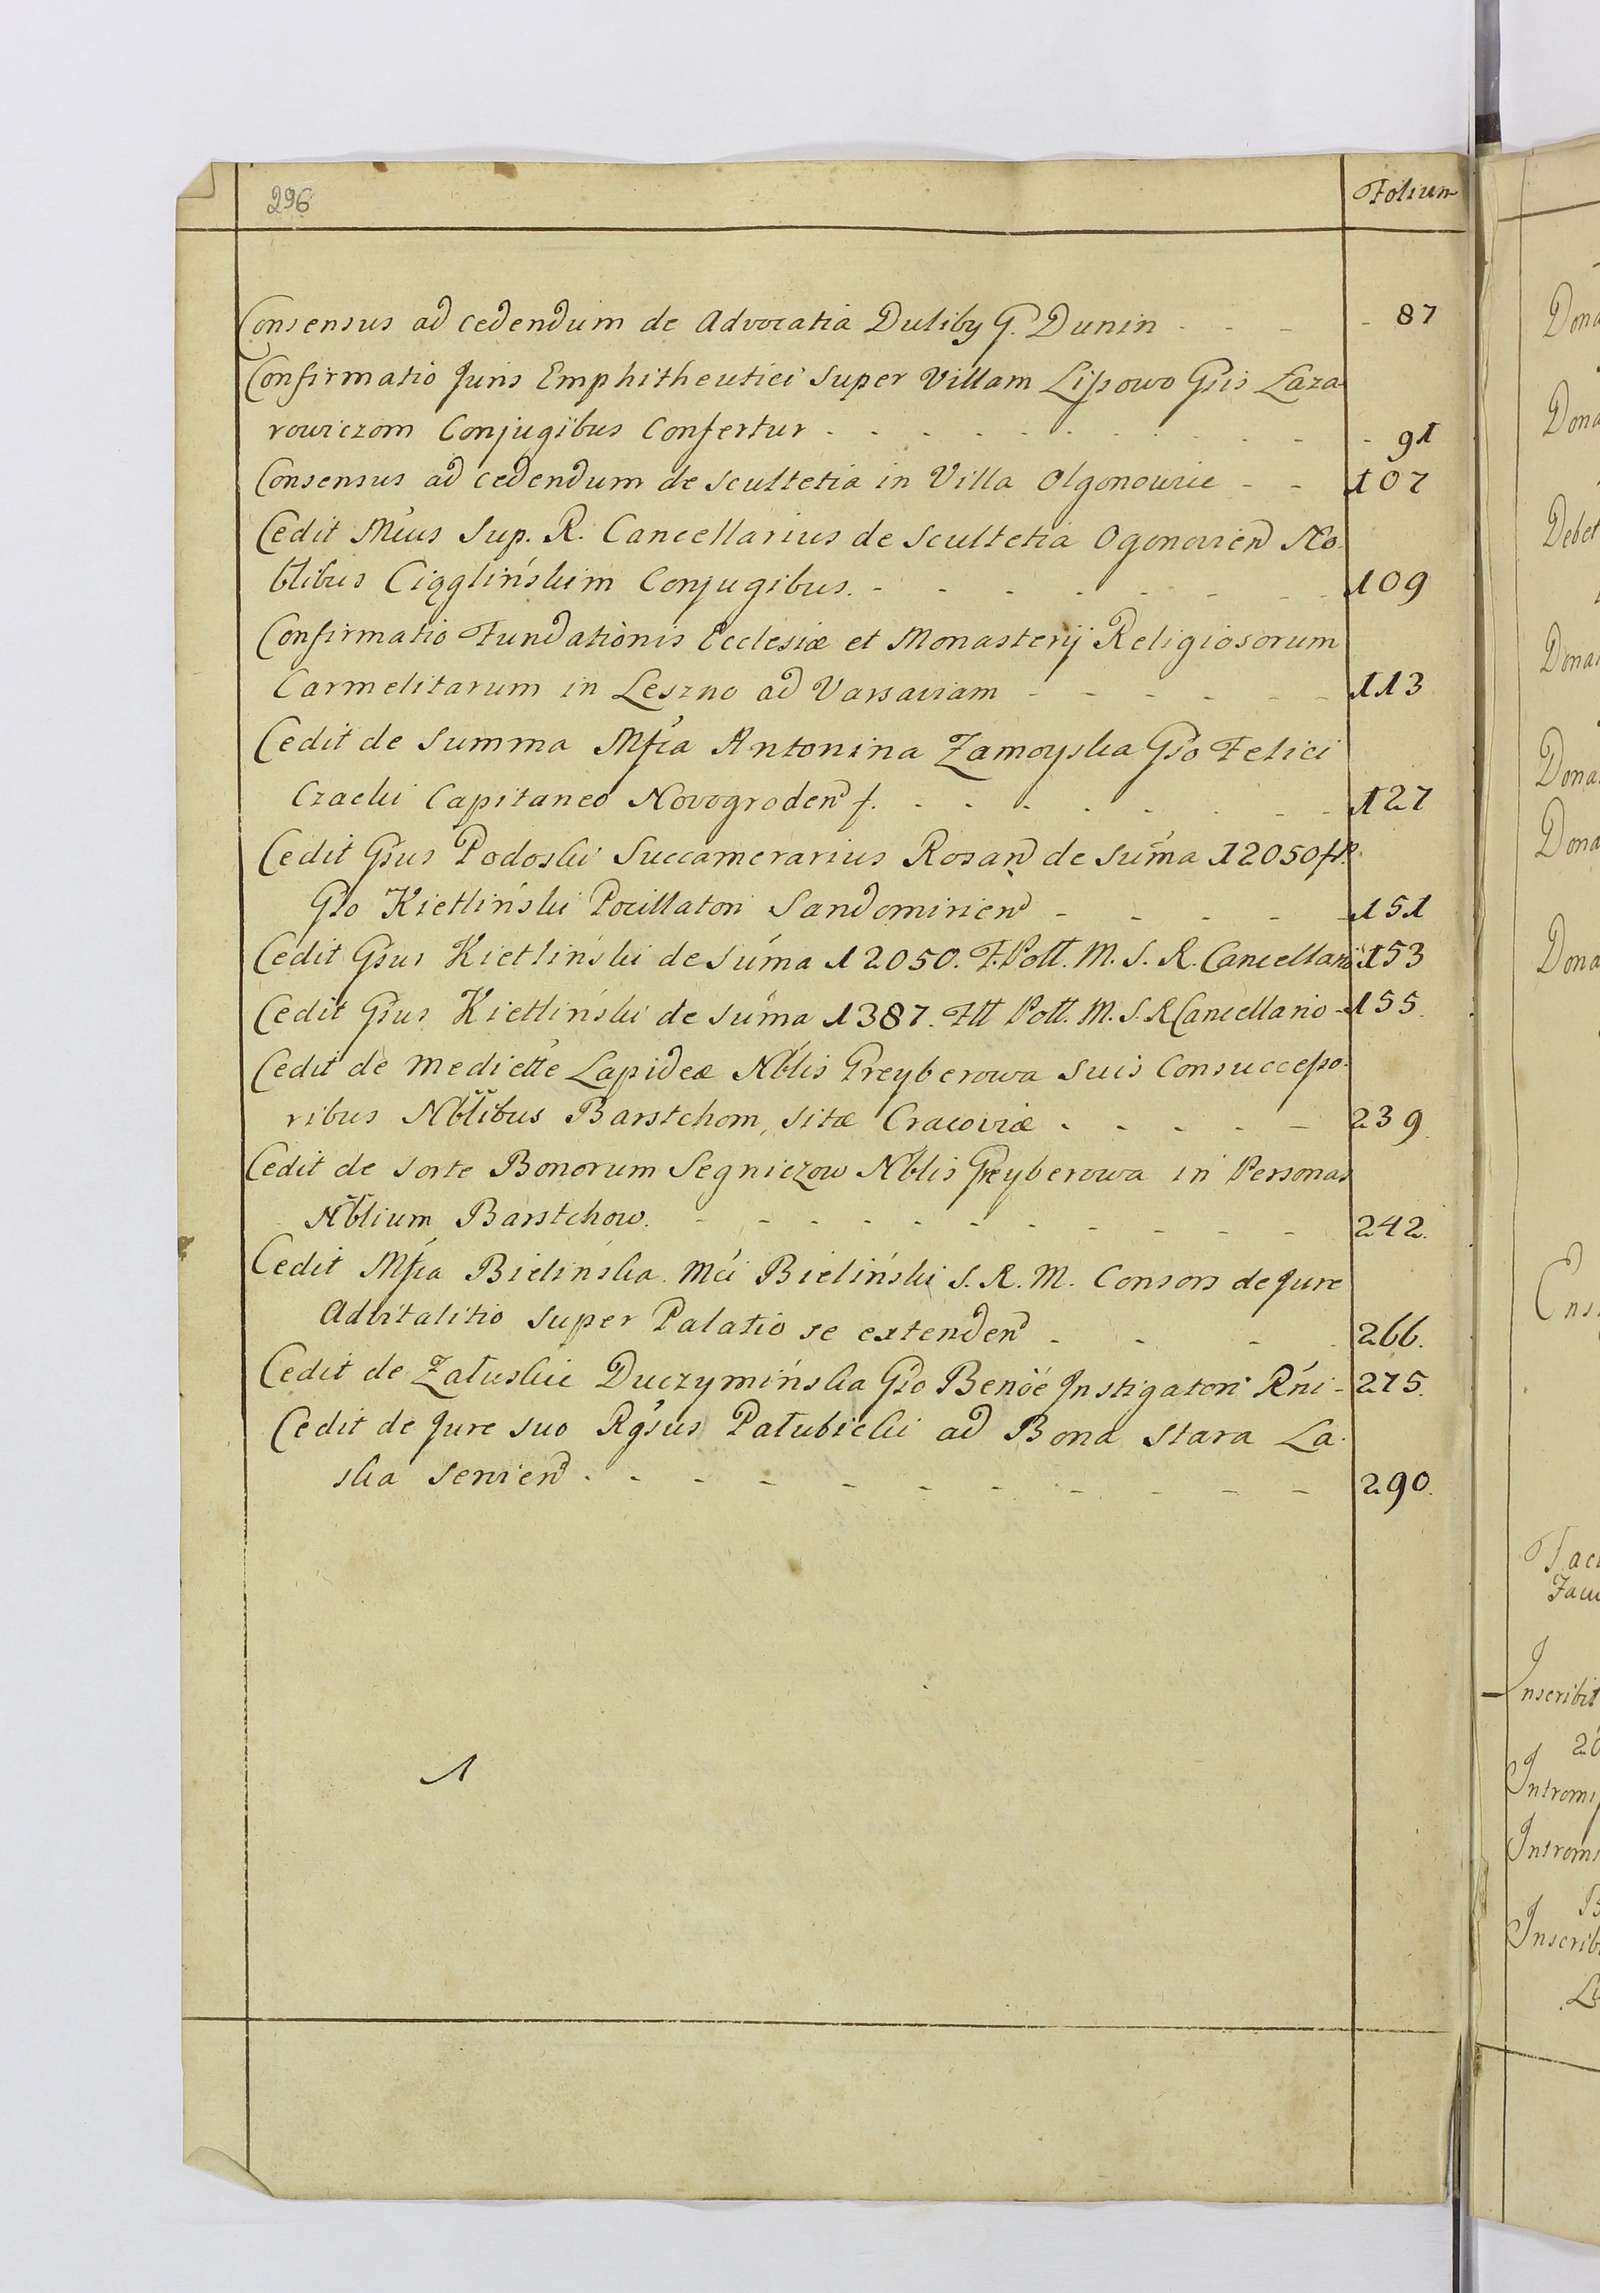 296
Folium
Consensus ad cedendum de Advocatia Duliby G. Dunin - - - - 87
Confirmatio Juris Emphitheutici super Villam Lipowo Gsis Łaza-
rowiczom Conjugibus Confertur - - - - - - - - - - 91
Consensus ad cedendum de scultetia in Villa Olgonowie - - 107
Cedit Mcus Sup. R. Cancellarius de Scultetia Ogonovien No-
blibus Ciąglińskim Conjugibus. - - - - - - - 109
Confirmatio Fundationis Ecclesiæ et Monasterij Religiosorum
Carmelitarum in Leszno ad Varsaviam - - - - - - 113
Cedit de summa Mfca Antonina Zamoyska Gso Felici
Czacki Capitaneo Novogroden f. - - - - - - - - 127
Cedit Gsus Podoski Succamerarius Rosan de suma 12050 fp.
Gso Kietliński Pocillatori Sandomirien - - - - - 151
Cedit Gsus Kietliński de suma 12050. F. Poll. M. S. R. Cancellario 153
Cedit Gsus Kietliński de suma 1387. Fll Poll. M. S. R Cancellario - 155.
Cedit de mediette Lapideæ Nblis Preyberowa suis Consuccesso-
ribus Nblibus Barstchom, sitæ Cracoviæ - - - - - 239.
Cedit de sorte Bonorum Segniczow Nblis Preyberowa in Personas
Nblium Barstchow. - - - - - - - - - - - 242.
Cedit Mfca Bielinska Mci Bieliński S. R. M. Consors de Jure
Advitalitio super Palatio se extenden - - - - 266.
Cedit de Załuskie Duczymińska Gso Benoe Instigatori Rni - 275.
Cedit de Jure suo Rgsus Pałubicki ad Bona Stara La-
ska servien - - - - - - - - - - 290.
1
Dona
Dona
Debet
Dona
Dona
Dona
Inscribit
Intromi
Introm
Inscrib